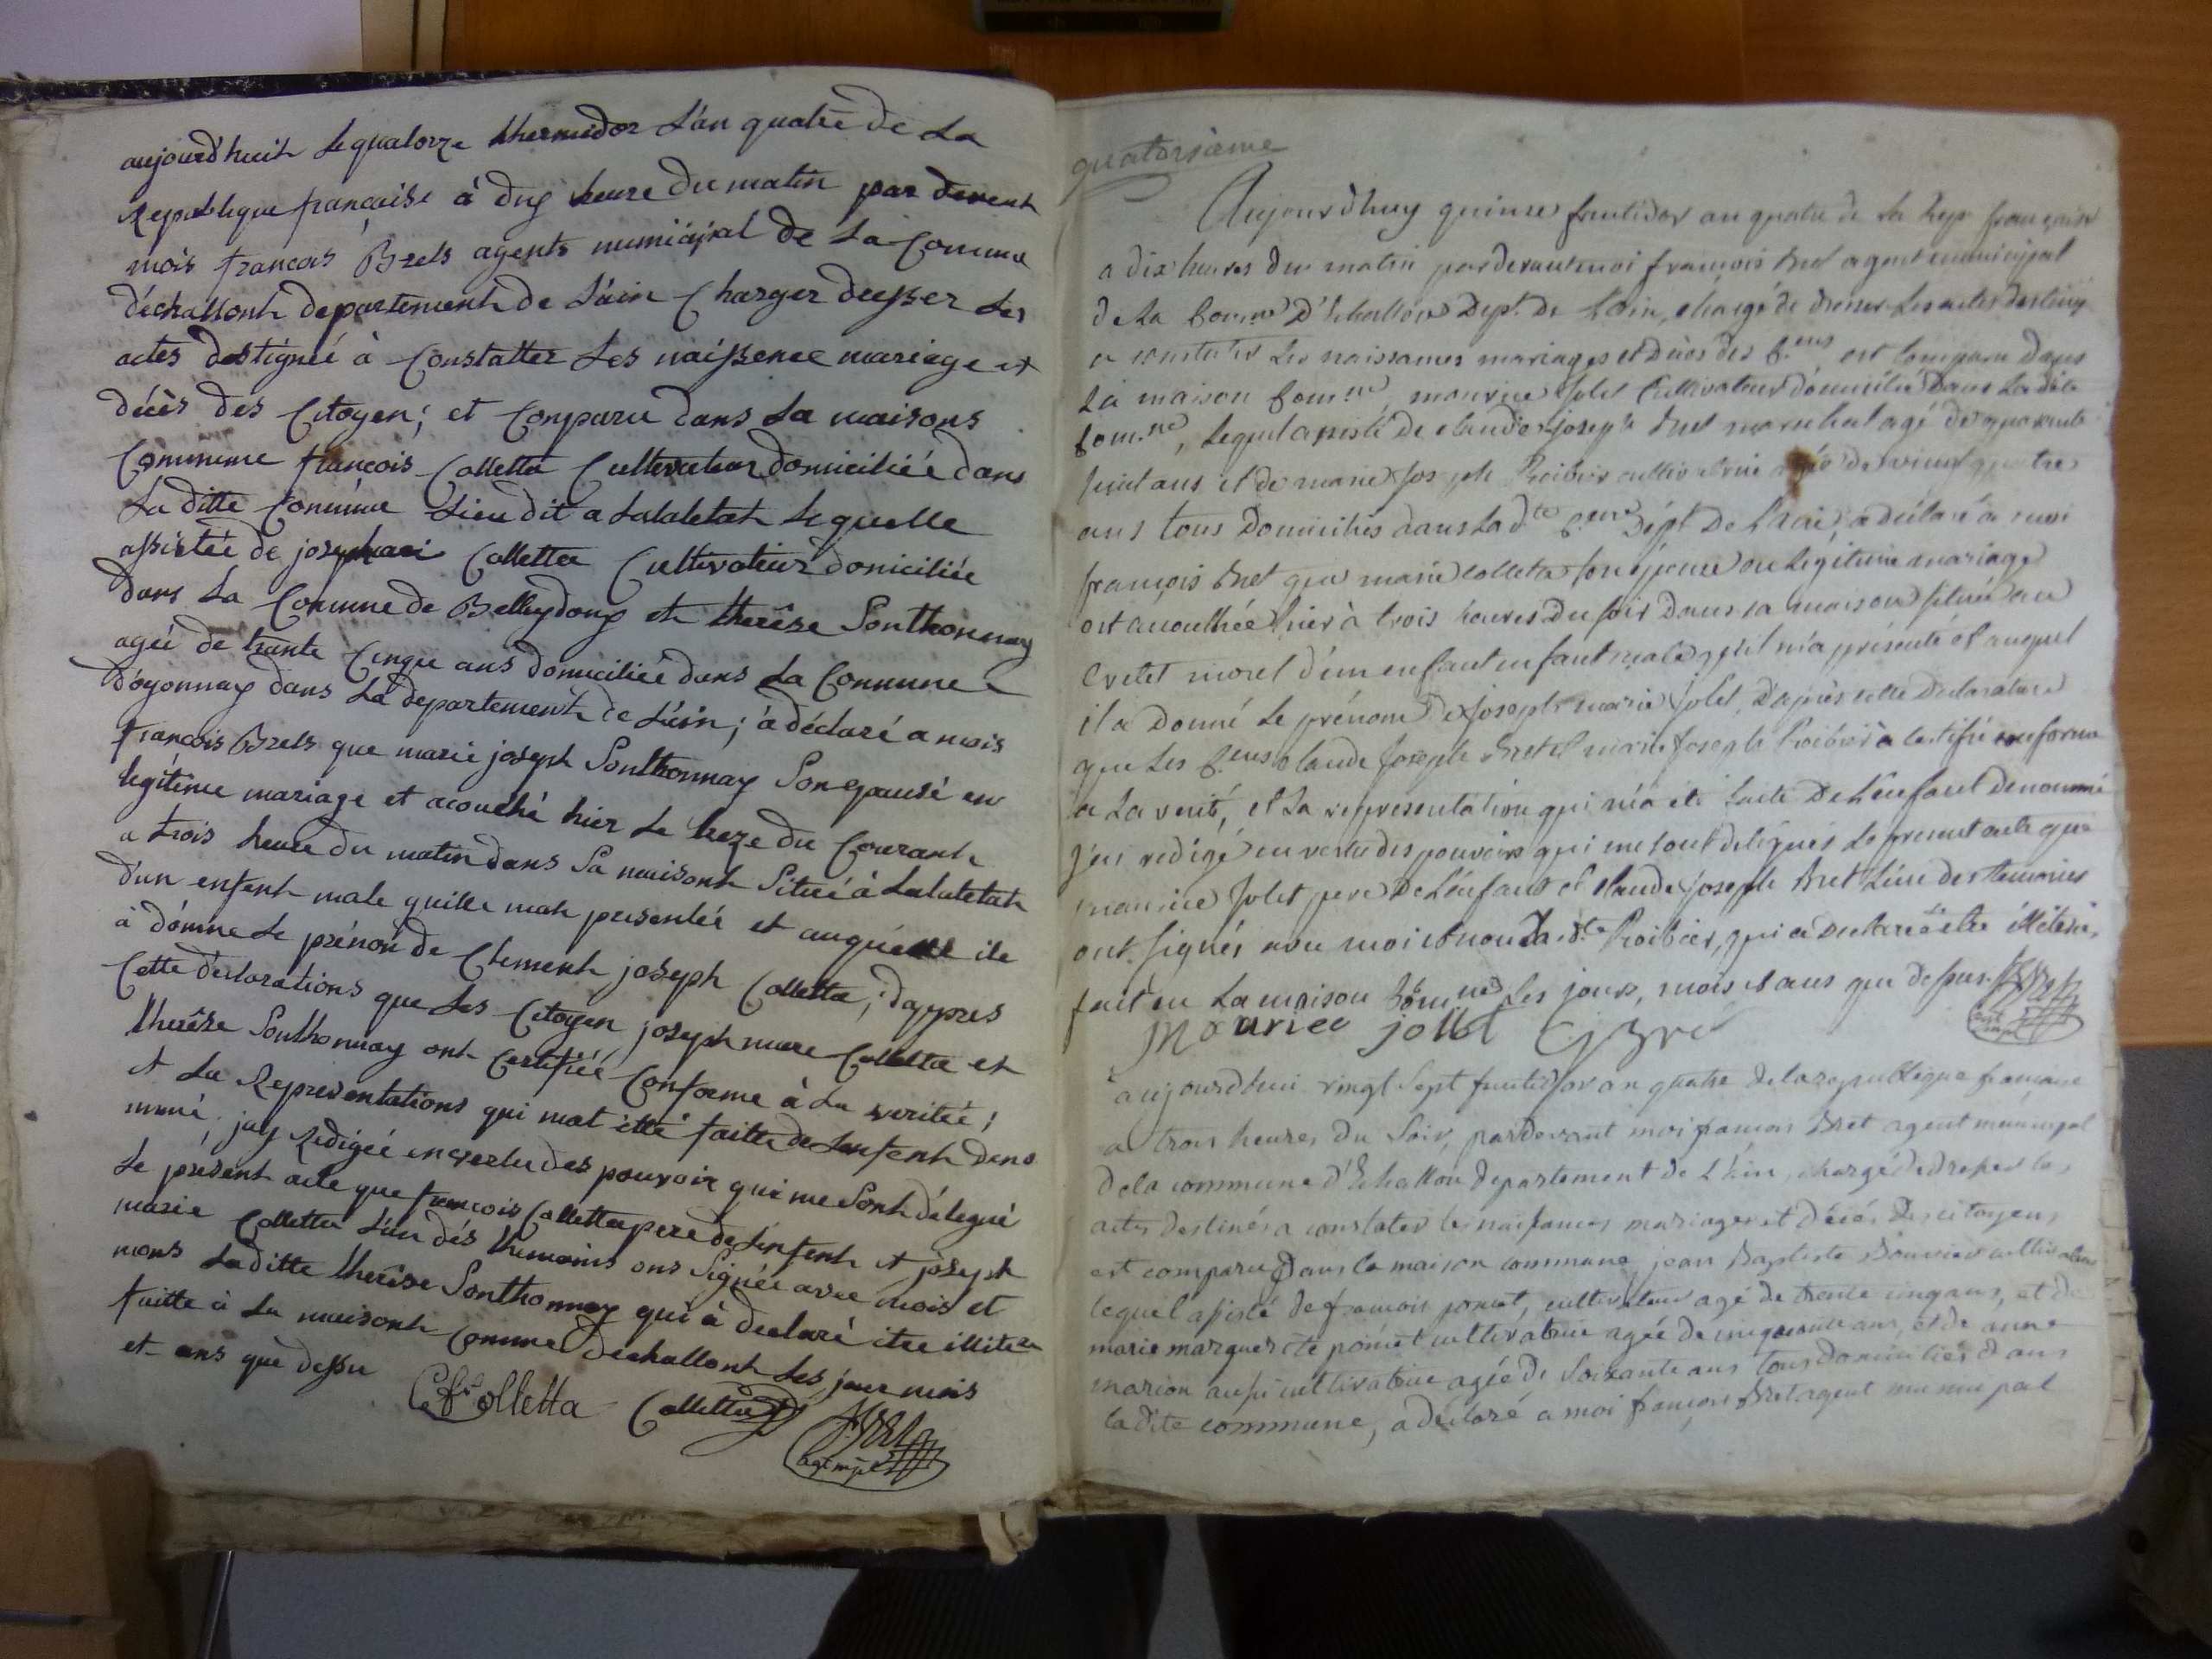 aujourd'huit le quatorze thermidor l'an quatre de la
Republique francaise à dix heure du matin par devent
mois francois Brets agents municipal de la Comune
d'échallont departement de l'ain Charger dresser les
actes destignéé à Constatter les naissence mariage et
décès des Citoyen; et Comparu dans la maisons
Commune francois Colletta Cultivateur domiciliéé dans
la ditte Commune lieu dit a lalaletat lequelle
assistéé de joseph Colletta Cultivateur domiciliéé
dans la Comune de Belleydoux et therêse Sonthonnax
agéé de trante Cinque ans domiciliéé dans la Commune
d'oyonnax dans le departement de l'ain; à déclaré a mois
francois Brets que marie joseph Sonthonnax Son epausé en
legitime mariage et acouché hier le treze du Courant
a trois heure du matin dans Sa maisont Situé à lalaletat
d'un enfent male quille mat presentéé et auquelle ile
à donné le prénom de Clement joseph Colletta; dappres
Cette déclarations que les Citoyen joseph marie Colletta et
therêse Sonthonnax ont Certifiéé Conforme à la veritéé;
et la Representations qui mat étté faitte de lenfent deno
mmé, jay Redigéé en vertu des pouvoir qui me Sont délegué
le présent acte que francois Colletta pere de lenfent et joseph
marie Colletta l'un dés themoins ons Signéé avec mois et
nons laditte therêse Sonthonnax qui à declaré itre illitere
faitte à la maisont Comune dechallont les jour mois
et ans que dessu
C f Colletta Colletta Bret
agt mpl
quatorsième
Aujourd'huy quinse frutidor an quatre de la Rep francaise
a dix heures du matin pardevant moi francois Bret agent municipal
de la Comne D'Echallon Dept. De l'ain, chargé de dresser les actes destinés
a constater les naissances mariages et Décès des C.ens est comparu Dans
la maison Comne, maurice Jolet Cultivateur domicilié Dans la dite
Comne, lequel assisté de claude joseph Bret marechal agé de quarante
huit ans et de marie Joseph Proibier cultivatrice agée de vient quatre
ans tous Domiciliés dans la dte Cne Dépt De l'ain, a déclaré a moi
françois Bret que marie colleta son épouse en légitime mariage
est accouchée hier à trois heures du soir Dans sa maison située au
Cretet morel d'un enfant enfant male qu'il m'a présenté et auquel
il a Donné le prénom De Joseph marie Jolet, D'après cette Déclaration
que les C.ens claude Joseph Bret et marie Joseph Proibier a certifié conforme
a la verité, et la representation qui m'a été faite De l'enfant denommé
j'ai redigé en vertu des pouvoirs qui me sont délégués le present acte que
maurice Jolet pere De l'enfant et claude joseph Bret l'un des temoins
ont signés avec moi et non la dte Proibier, qui a declaré être illiterée,
fait en la maison Comne les jours, mois et ans que dessus. Bret
maurice jollet CJ Bret
aujourdhui vingt sept frutidor an quatre de la republique française
a trois heures du Soir, pardevant moi françois Bret agent municipal
de la commune d'Echallon departement de l'Ain, chargé de dresser les
actes destinés a constater les naissances mariages et décès des citoyens
est comparu dans la maison commune jean Baptiste Bouvier cultivateur
lequel assisté de francois poncet, cultivateur agé de trente cinq ans, et de
marie marguerite poncet cultivatrice agée de cinquante ans, et de anne
marion aussi cultivatrice agée de soixante ans tous domiciliés dans
la dite commune, a déclaré a moi françois Bret agent municipal